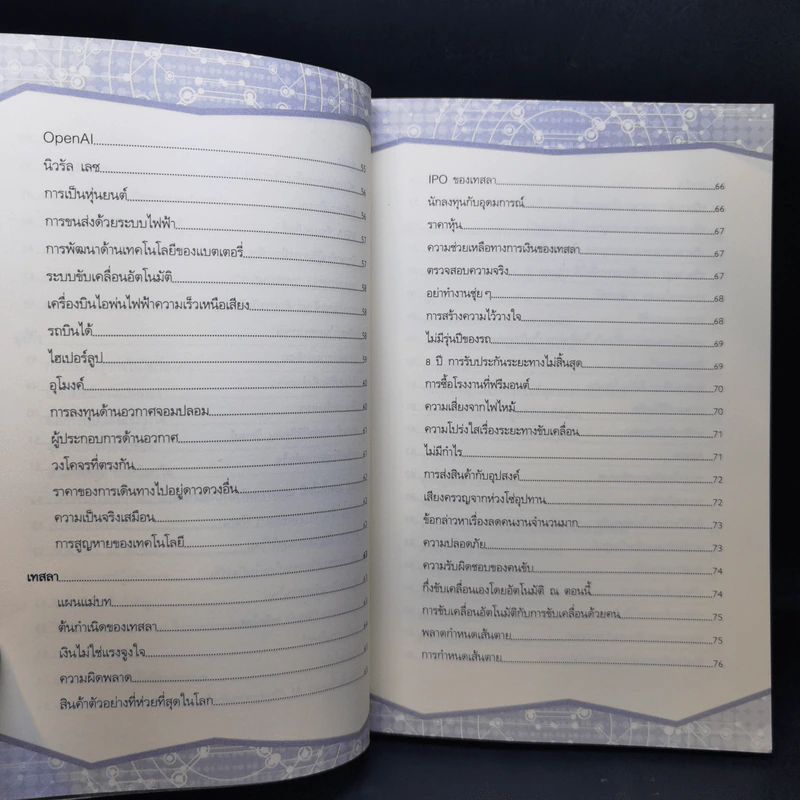 OpenAI
นิวรัล เลซ 55
การเป็นหุ่นยนต์ 56
การขนส่งด้วยระบบไฟฟ้า 56
การพัฒนาด้านเทคโนโลยีของแบตเตอรี่ 57
ระบบขับเคลื่อนอัตโนมัติ 57
เครื่องบินไอพ่นไฟฟ้าความเร็วเหนือเสียง 58
รถบินได้ 58
ไฮเปอร์ลูป 59
อุโมงค์ 60
การลงทุนด้านอวกาศจอมปลอม 60
ผู้ประกอบการด้านอวกาศ 61
วงโคจรที่ตรงกัน 61
ราคาของการเดินทางไปอยู่ดาวดวงอื่น 62
ความเป็นจริงเสมือน 62
การสูญหายของเทคโนโลยี
เทสลา
แผนแม่บท
ต้นกำเนิดของเทสลา
เงินไม่ใช่แรงจูงใจ
ความผิดพลาด
สินค้าตัวอย่างที่ห่วยที่สุดในโลก
IPO ของเทสลา 66
นักลงทุนกับอุดมการณ์ 66
ราคาหุ้น 67
ความช่วยเหลือทางการเงินของเทสลา 67
ตรวจสอบความจริง 67
อย่าทำงานชุ่ย ๆ 68
การสร้างความไว้วางใจ 68
ไม่มีรุ่นปีของรถ 69
8 ปี การรับประกันระยะทางไม่สิ้นสุด 69
การซื้อโรงงานที่ฟรีมอนต์ 70
ความเสี่ยงจากไฟไหม้ 70
ความโปร่งใสเรื่องระยะทางขับเคลื่อน 71
ไม่มีกำไร 71
การส่งสินค้ากับอุปสงค์ 72
เสียงครวญจากห่วงโซ่อุปทาน 72
ข้อกล่าวหาเรื่องลดคนงานจำนวนมาก 73
ความปลอดภัย 73
ความรับผิดชอบของคนขับ 74
กึ่งขับเคลื่อนเองโดยอัตโนมัติ ณ ตอนนี้ 74
การขับเคลื่อนอัตโนมัติกับการขับเคลื่อนด้วยคน 75
พลาดกำหนดเส้นตาย 75
การกำหนดเส้นตาย 76